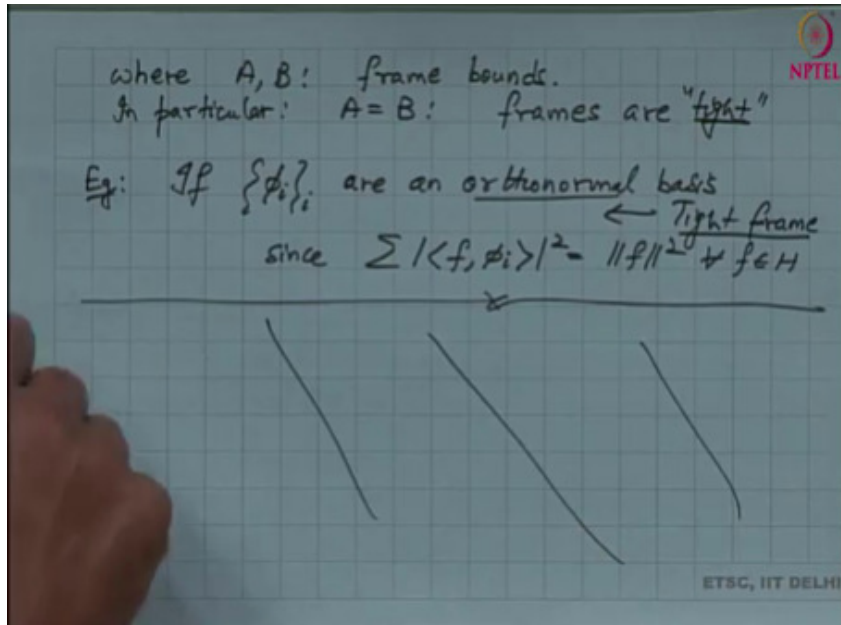 NPTEL
where A, B: frame bounds.
In particular: A = B: frames are "tight"
Eg: If {ϕi}i are an orthonormal basis
← Tight frame
since Σ |<f, ϕi>|² = ||f||² ∀ f ∈ H
ETSC, IIT DELHI